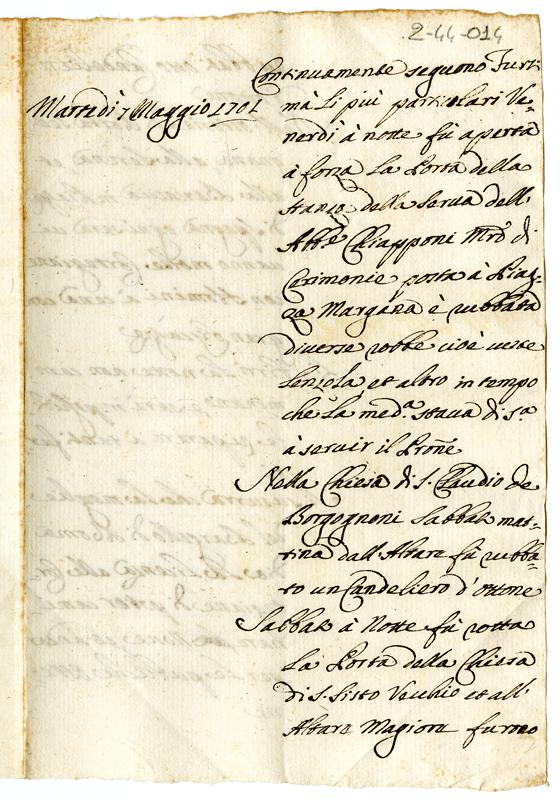 2-44-014
Continuamente seguono Furti
Martedì 7 Maggio 1701
mà li più particolari Ve=
nerdì à notte fù aperta
à forza la Porta della
stanza della serva dell.
Abb.e Chiapponi Mrõ di
Cerimonie posta à Piaz=
za Margana è rubbata
diverse robbe cioè veste
Lenzola et altro in tempo
che la med.a stava di s.a
à servir il Prone
Nella Chiesa di S. Claudio de
Borgognoni Sabbato mat=
tina dall. Altare fù rubba=
to un Candeliero d'ottone
Sabbato à Notte fù rotta
la Porta della Chiesa
di S. Sisto Vecchio et all.
Altare Magiore furono